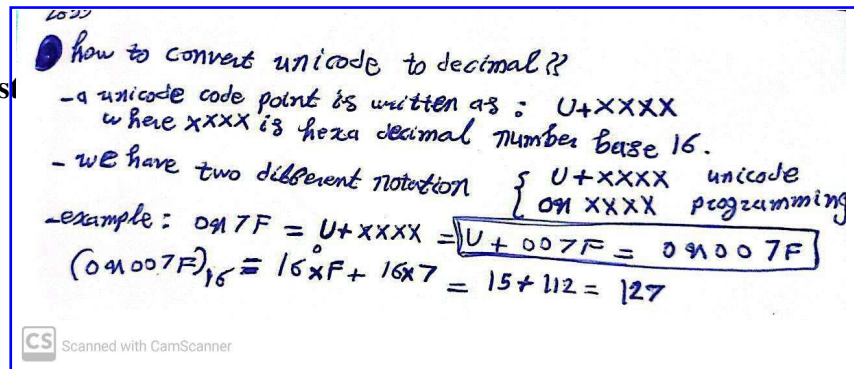 how to convert unicode to decimal??
-a unicode code point is written as : U+XXXX
where xxxx is hexa decimal number base 16.
- we have two different notation { U+XXXX unicode
0x XXXX programming
-example : 0x7F = U+XXXX = U+007F = 0x007F
(0x007F)₁₆ = 16⁰xF + 16x7 = 15+112 = 127
CS Scanned with CamScanner